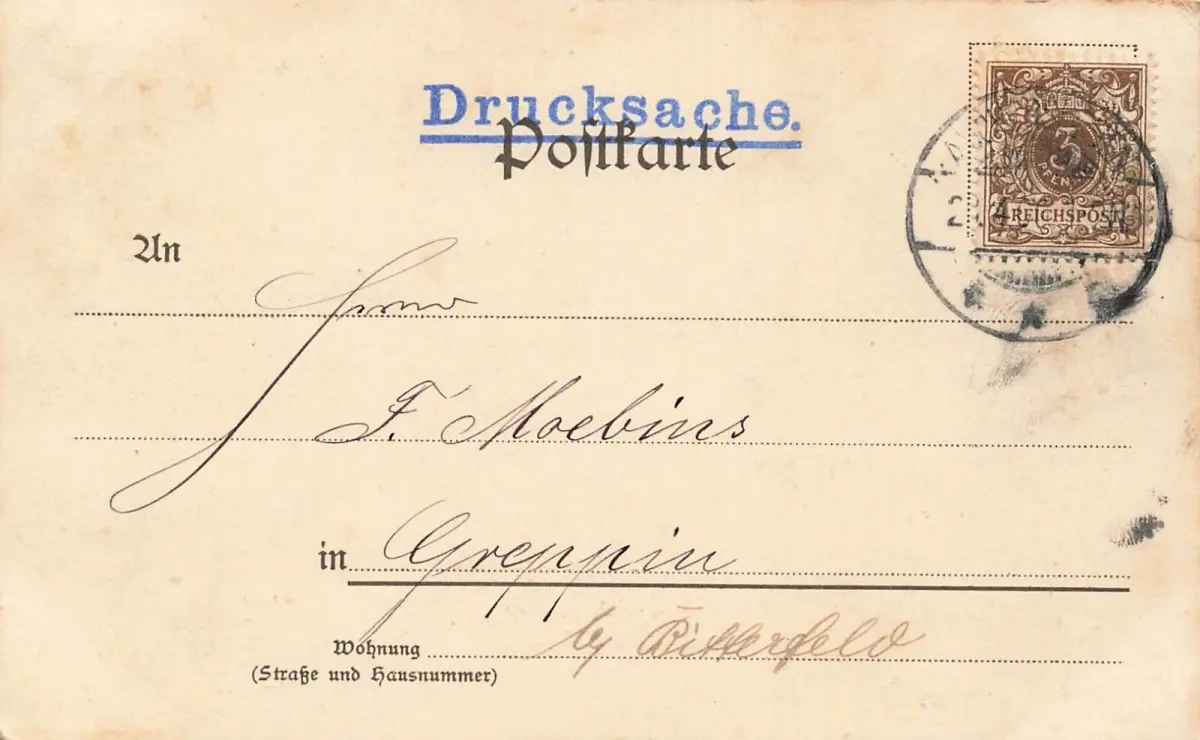 Drucksache.
Postkarte
3
PFENNIG
REICHSPOST
An
Herrn
F. Moebius
in Greppin
Wohnung by Bitterfeld
(Straße und Hausnummer)